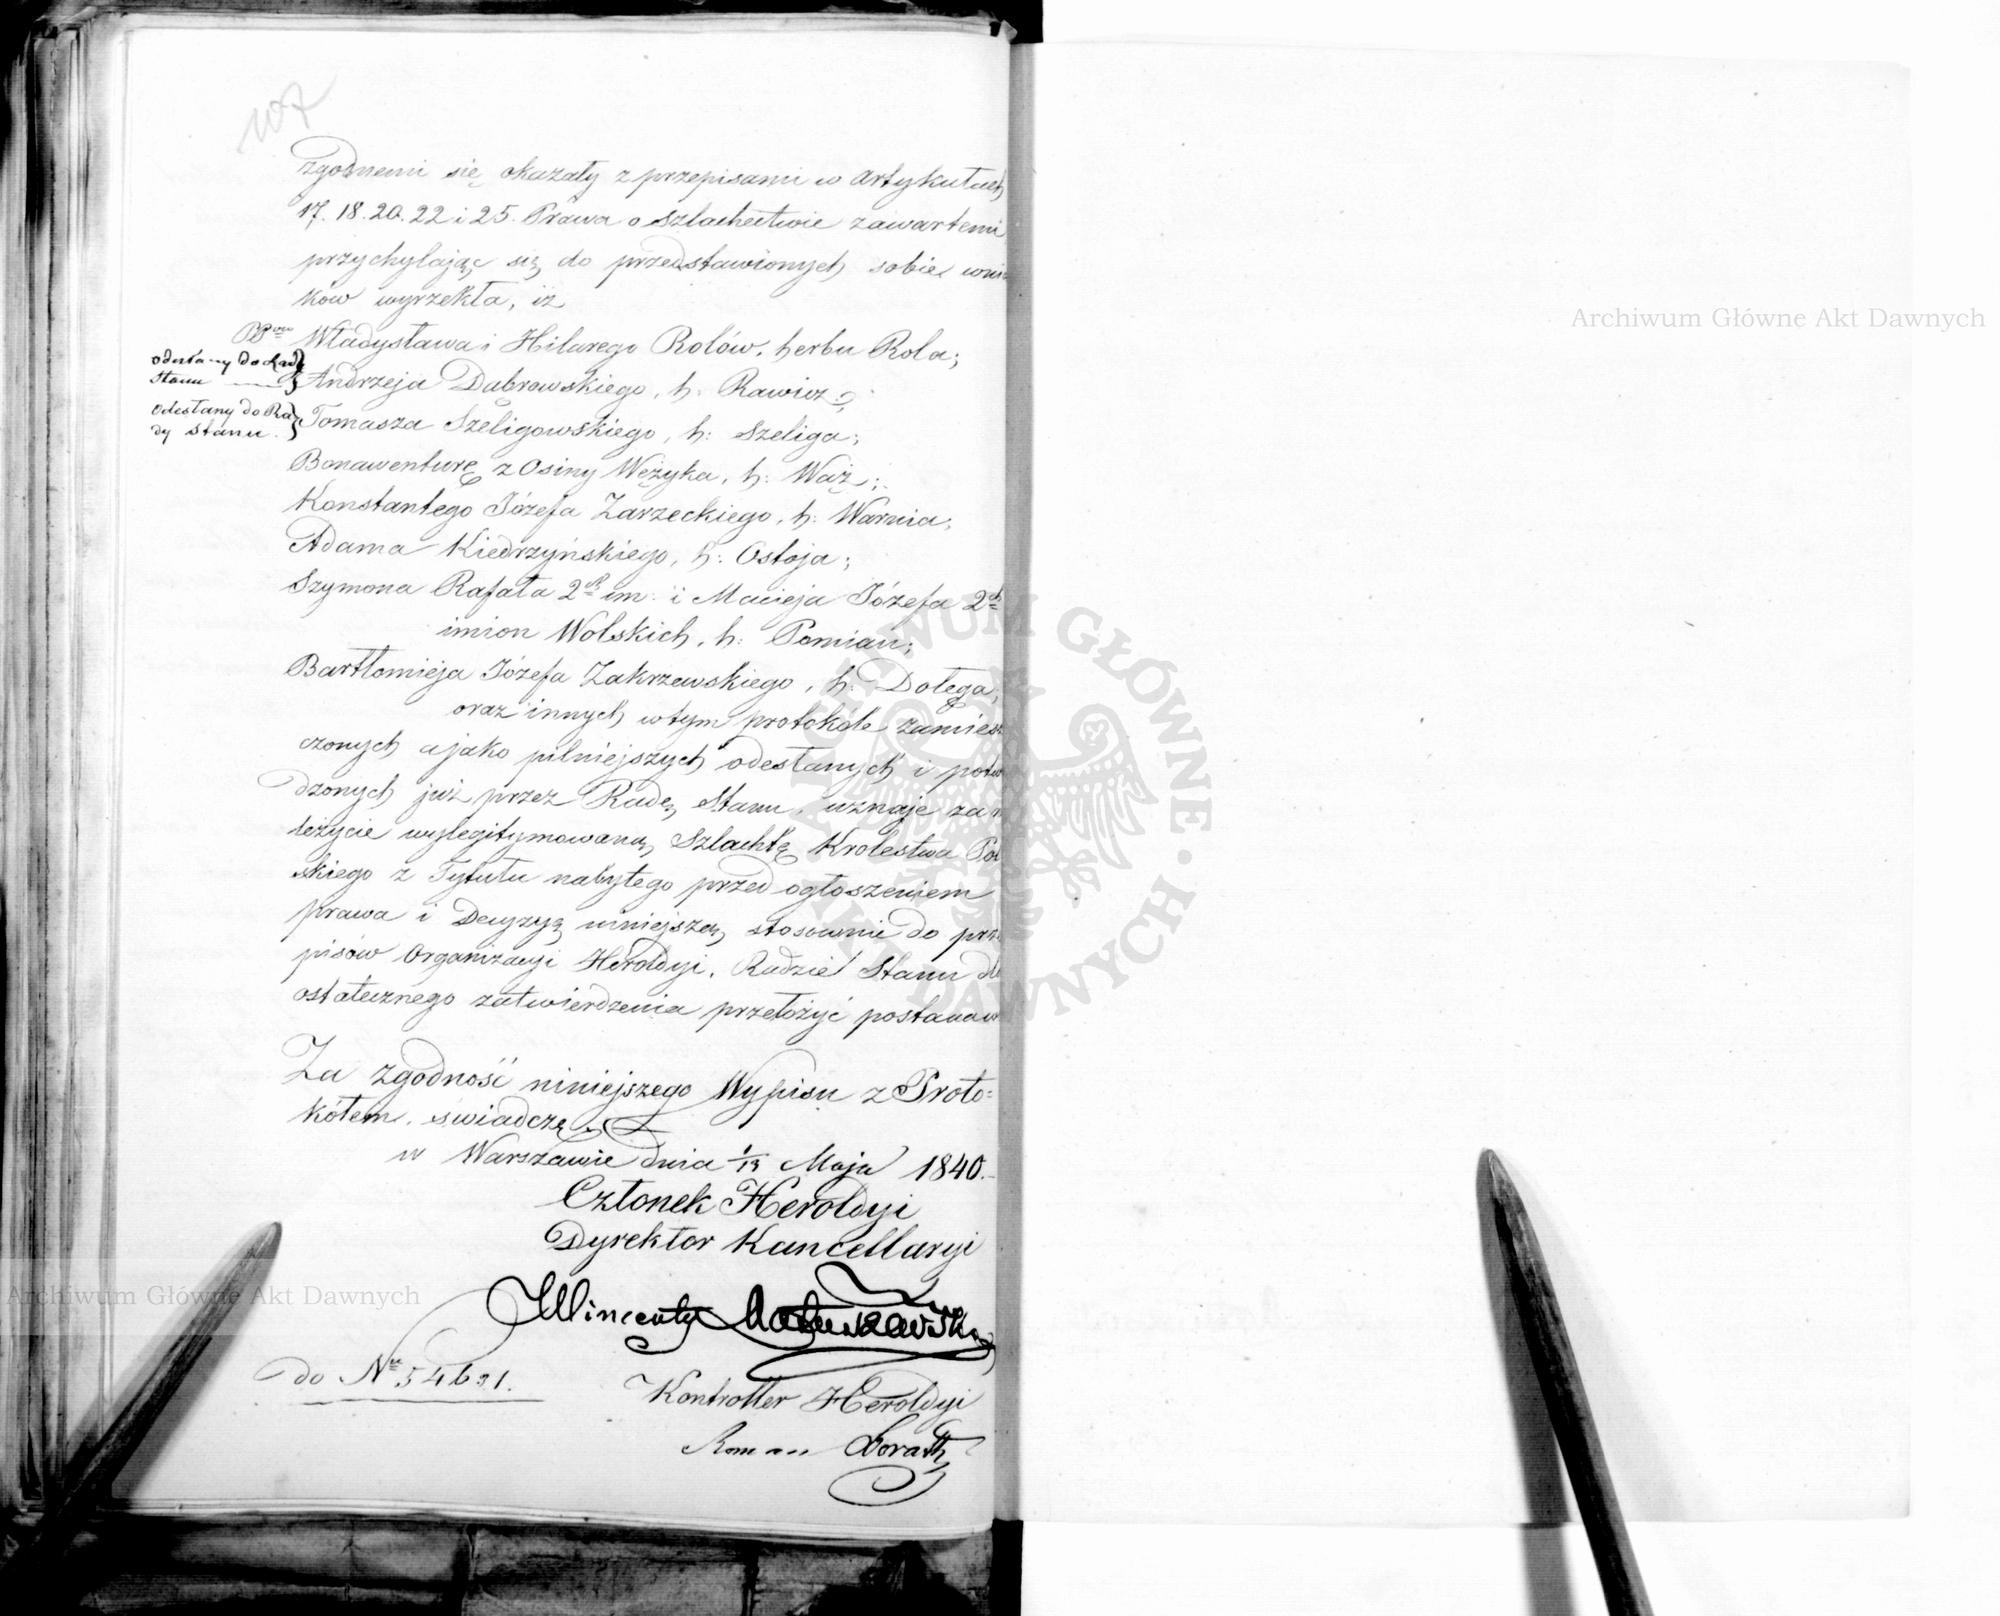 107
zgodnemi się okazały z przepisami w Artykułach
17. 18. 20. 22 i 25. Prawa o Szlachectwie zawartemi
przychylając się do przedstawionych sobie wnio
ków wyrzekła, iż
PP
Władysława i Hilarego Rolów, herbu Rola;
odesłany do Rady
Stanu
Andrzeja Dąbrowskiego, h: Rawicz;
odesłany do Ra
dy Stanu.
Tomasza Szeligowskiego, h: Szeliga;
Bonawenturę z Osiny Wężyka, h: Wąż;
Konstantego Józefa Zarzeckiego, h: Warnia;
Adama Kiedrzyńskiego, h: Ostoja;
Szymona Rafała 2ch im: i Macieja Józefa 2ch
imion Wolskich, h: Pomian;
Bartłomieja Józefa Zakrzewskiego, h: Dołęga;
oraz innych w tym protokóle zamiesz
czonych a jako pilniejszych odesłanych i potw
dzonych już przez Radę Stanu, uznaje za n
leżycie wylegitymowaną Szlachtę Krolestwa Pol
skiego z Tytułu nabytego przed ogłoszeniem
prawa i Decyzyą niniejszą, stosownie do prze
pisów Organizacyi Heroldyi, Radzie Stanu dla
ostatecznego zatwierdzenia przełożyć postanaw
Za zgodność niniejszego Wypisu z Proto=
kółem, świadczę
w Warszawie dnia 1/13 Maja 1840.
Członek Heroldyi
Dyrektor Kancellaryi
Wincenty Matuszewski
do Nru 54631.
Kontroller Heroldyi
Roman
Archiwum Główne Akt Dawnych
Archiwum Główne Akt Dawnych
ARCHIWUM GŁÓWNE · AKT DAWNYCH ·